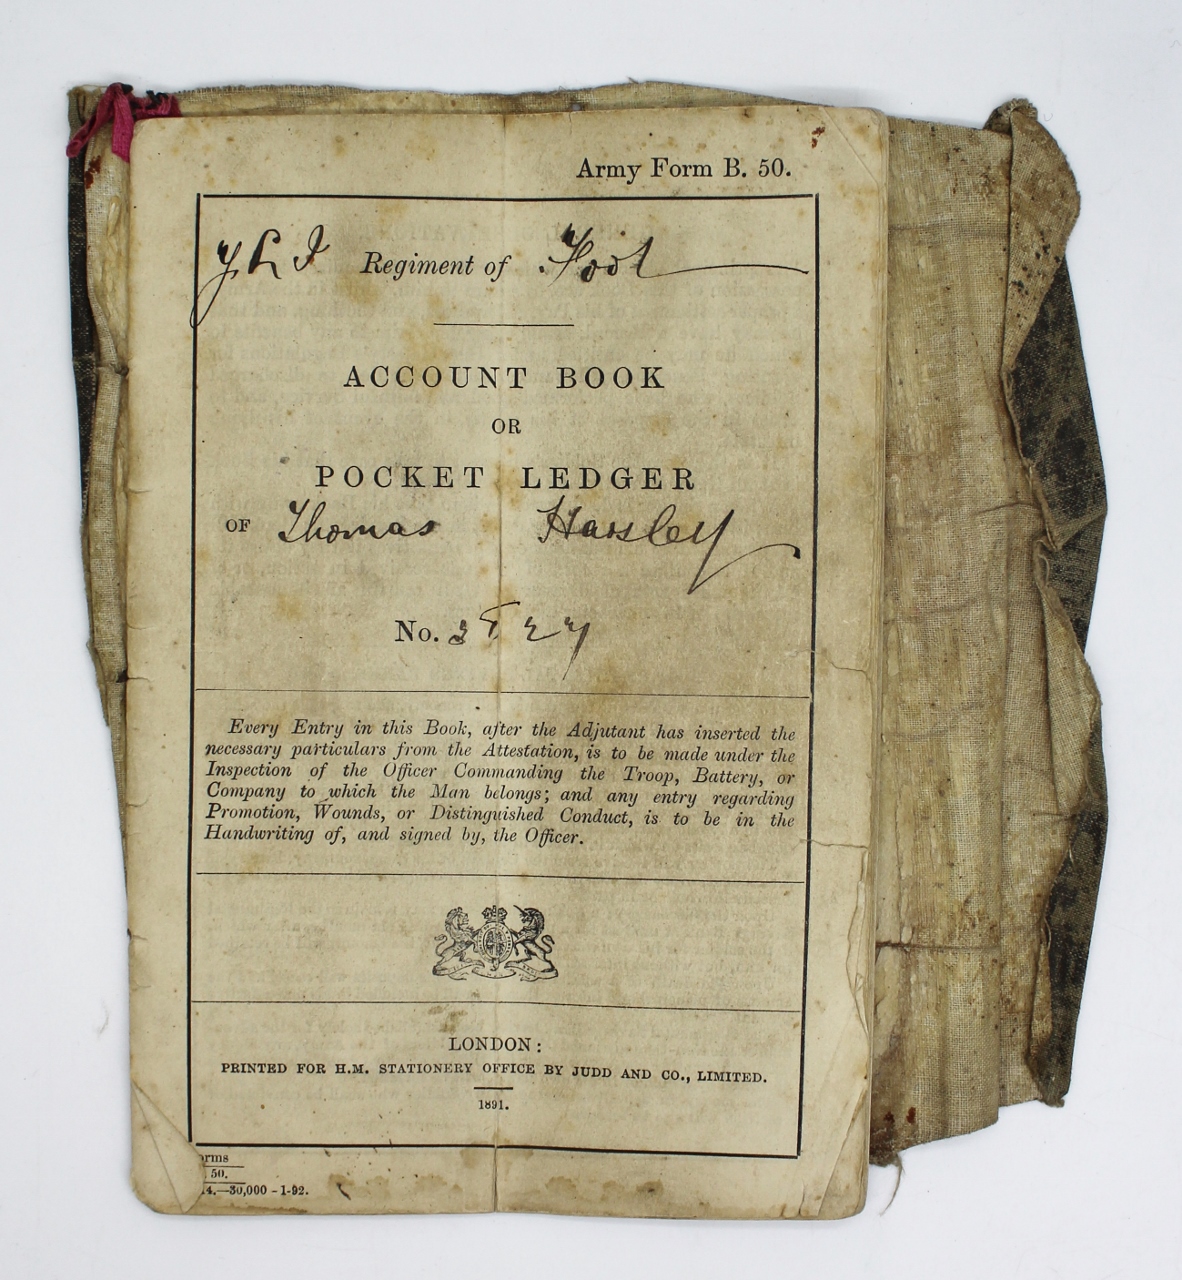 Army Form B. 50.
Y L I Regiment of Foot
ACCOUNT BOOK
OR
POCKET LEDGER
OF Thomas
No.
Every Entry in this Book, after the Adjutant has inserted the
necessary particulars from the Attestation, is to be made under the
Inspection of the Officer Commanding the Troop, Battery, or
Company to which the Man belongs; and any entry regarding
Promotion, Wounds, or Distinguished Conduct, is to be in the
Handwriting of, and signed by, the Officer.
LONDON:
PRINTED FOR H.M. STATIONERY OFFICE BY JUDD AND CO., LIMITED.
1891.
orms
50.
4.—30,000 - 1-92.